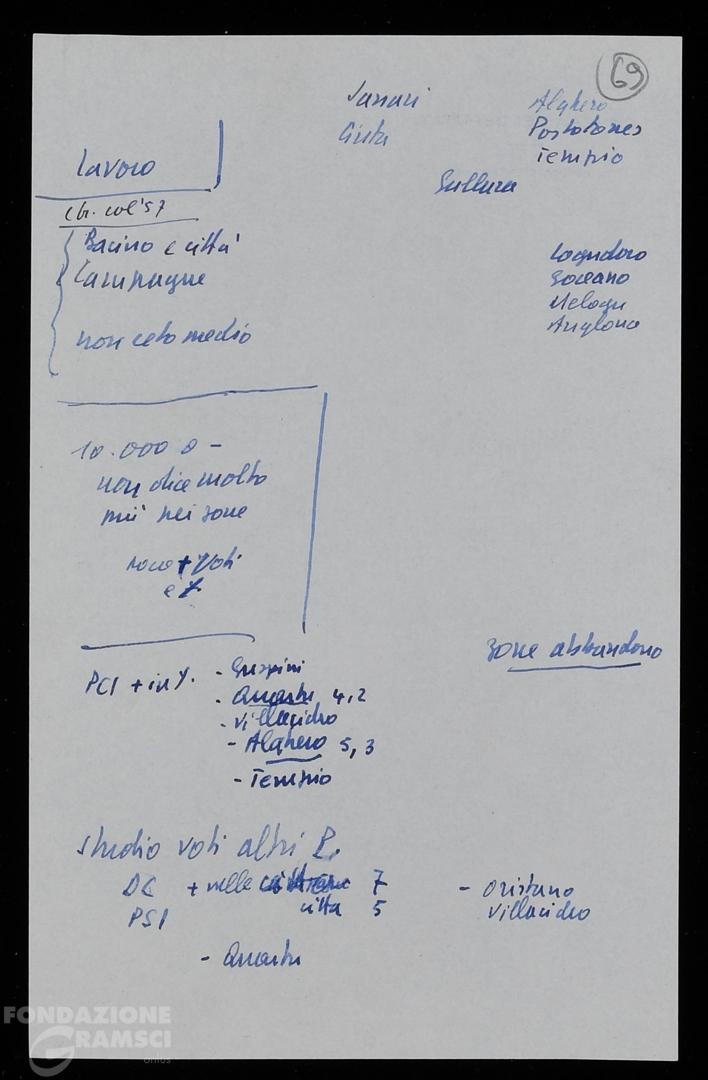 69
Sassari
Alghero
Portotorres
Tempio
Gallura
Lavoro
Bacino e città
Campagne
non ceto medio
Logudoro
Goceano
Anglona
10.000 o -
non dice molto
più nei zone
zone abbandono
PCI + in
- Guspini
- Quartu 4,2
- Villacidro
- Alghero 5,3
- Tempio
studio voti altri P.
DC + nelle 7
PSI città 5
- Oristano
Villacidro
- Quartu
FONDAZIONE
GRAMSCI
onlus